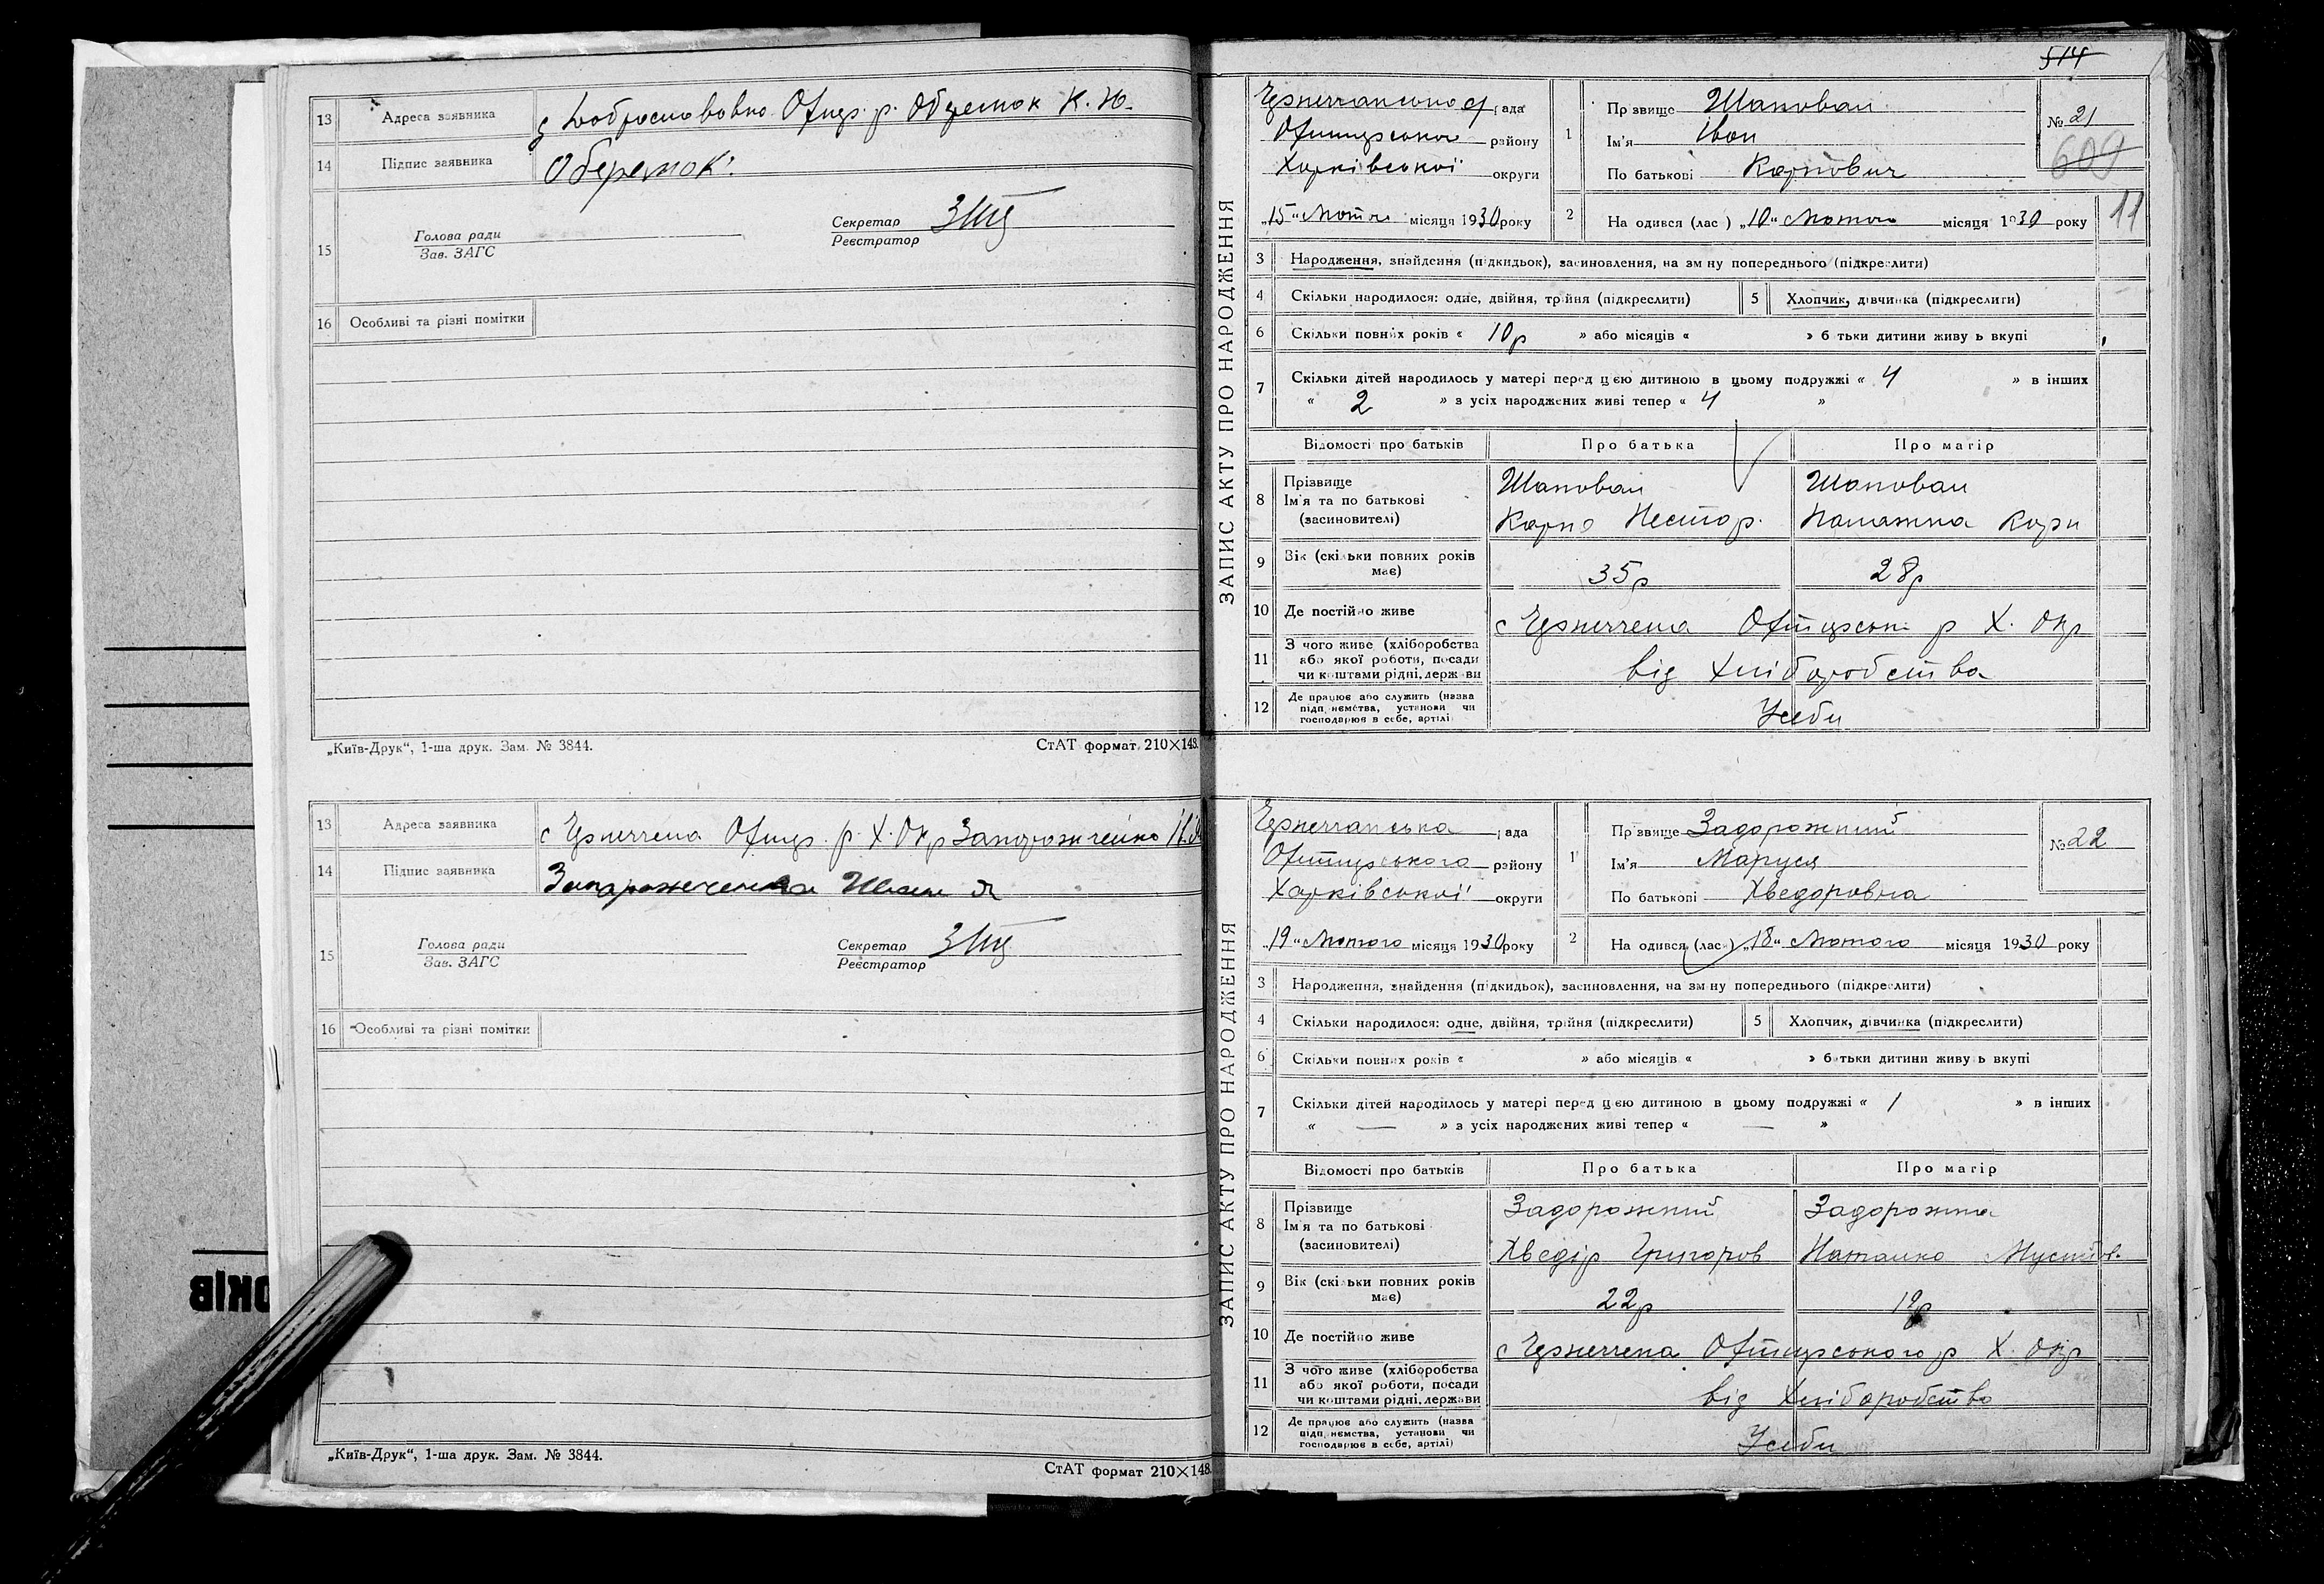 13 Адреса заявника с Доброславовка Охтир. р. Оберемок К. Ю.
14 Підпис заявника Оберемок
15 Голова ради
Зав. ЗАГС
Секретар
Реєстратор
16 Особливі та різні помітки
„Київ-Друк“, 1-ша друк. Зам. № 3844. СтАТ формат 210×148.
13 Адреса заявника с Охтир. р. Х. Окр Запорожченко
14 Підпис заявника Запорожченко
15 Голова ради
Зав. ЗАГС
Секретар
Реєстратор
16 Особливі та різні помітки
„Київ-Друк“, 1-ша друк. Зам. № 3844.
СтАТ формат 210×148.
ОКІВ
514
ЗАПИС АКТУ ПРО НАРОДЖЕННЯ
рада
району
Харківської округи
„15“ Лютого місяця 1930 року
1 Прізвище Шаповал
Ім'я Іван
По батькові Карпович
№ 21
609
2 Народився (лась) „10“ Лютого місяця 1930 року
11
3 Народження, знайдення (підкидьок), засиновлення, на зміну попереднього (підкреслити)
4 Скільки народилося: одне, двійня, трійня (підкреслити) 5 Хлопчик, дівчинка (підкреслити)
6 Скільки повних років « 10р » або місяців « » батьки дитини живуть вкупі
7 Скільки дітей народилось у матері перед цією дитиною в цьому подружжі « 4 » в інших
« 2 » з усіх народжених живі тепер « 4 »
Відомості про батьків Про батька Про матір
8 Прізвище
Ім'я та по батькові
(засиновителі)
Шаповал Шаповал
Карпо Нестор. Палажка Карп
9 Вік (скільки повних років
має) 35р 28р
10 Де постійно живе с р Х. Окр
11 З чого живе (хліборобства
або якої роботи, посади
чи коштами рідні, держави
від Хліборобства
12 Де працює або служить (назва
підприємства, установи чи
господарює в себе, артілі)
У себи
ЗАПИС АКТУ ПРО НАРОДЖЕННЯ
рада
Охтирського району
Харківської округи
„19“ Лютого місяця 1930 року
1 Прізвище Задорожний
Ім'я Маруся
По батькові Хведоровна
№ 22
2 Народився (лась) „18“ Лютого місяця 1930 року
3 Народження, знайдення (підкидьок), засиновлення, на зміну попереднього (підкреслити)
4 Скільки народилося: одне, двійня, трійня (підкреслити) 5 Хлопчик, дівчинка (підкреслити)
6 Скільки повних років « » або місяців « » батьки дитини живуть вкупі
7 Скільки дітей народилось у матері перед цією дитиною в цьому подружжі « 1 » в інших
« — » з усіх народжених живі тепер « — »
Відомості про батьків Про батька Про матір
8 Прізвище
Ім'я та по батькові
(засиновителі)
Задорожний Задорожна
Хведір Григоров Наталка
9 Вік (скільки повних років
має) 22р 19р
10 Де постійно живе с Охтирського р Х. Окр
11 З чого живе (хліборобства
або якої роботи, посади
чи коштами рідні, держави
від Хліборобства
12 Де працює або служить (назва
підприємства, установи чи
господарює в себе, артілі)
У себи